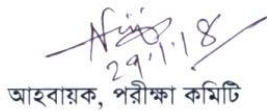 29.1.18
আহবায়ক, পরীক্ষা কমিটি